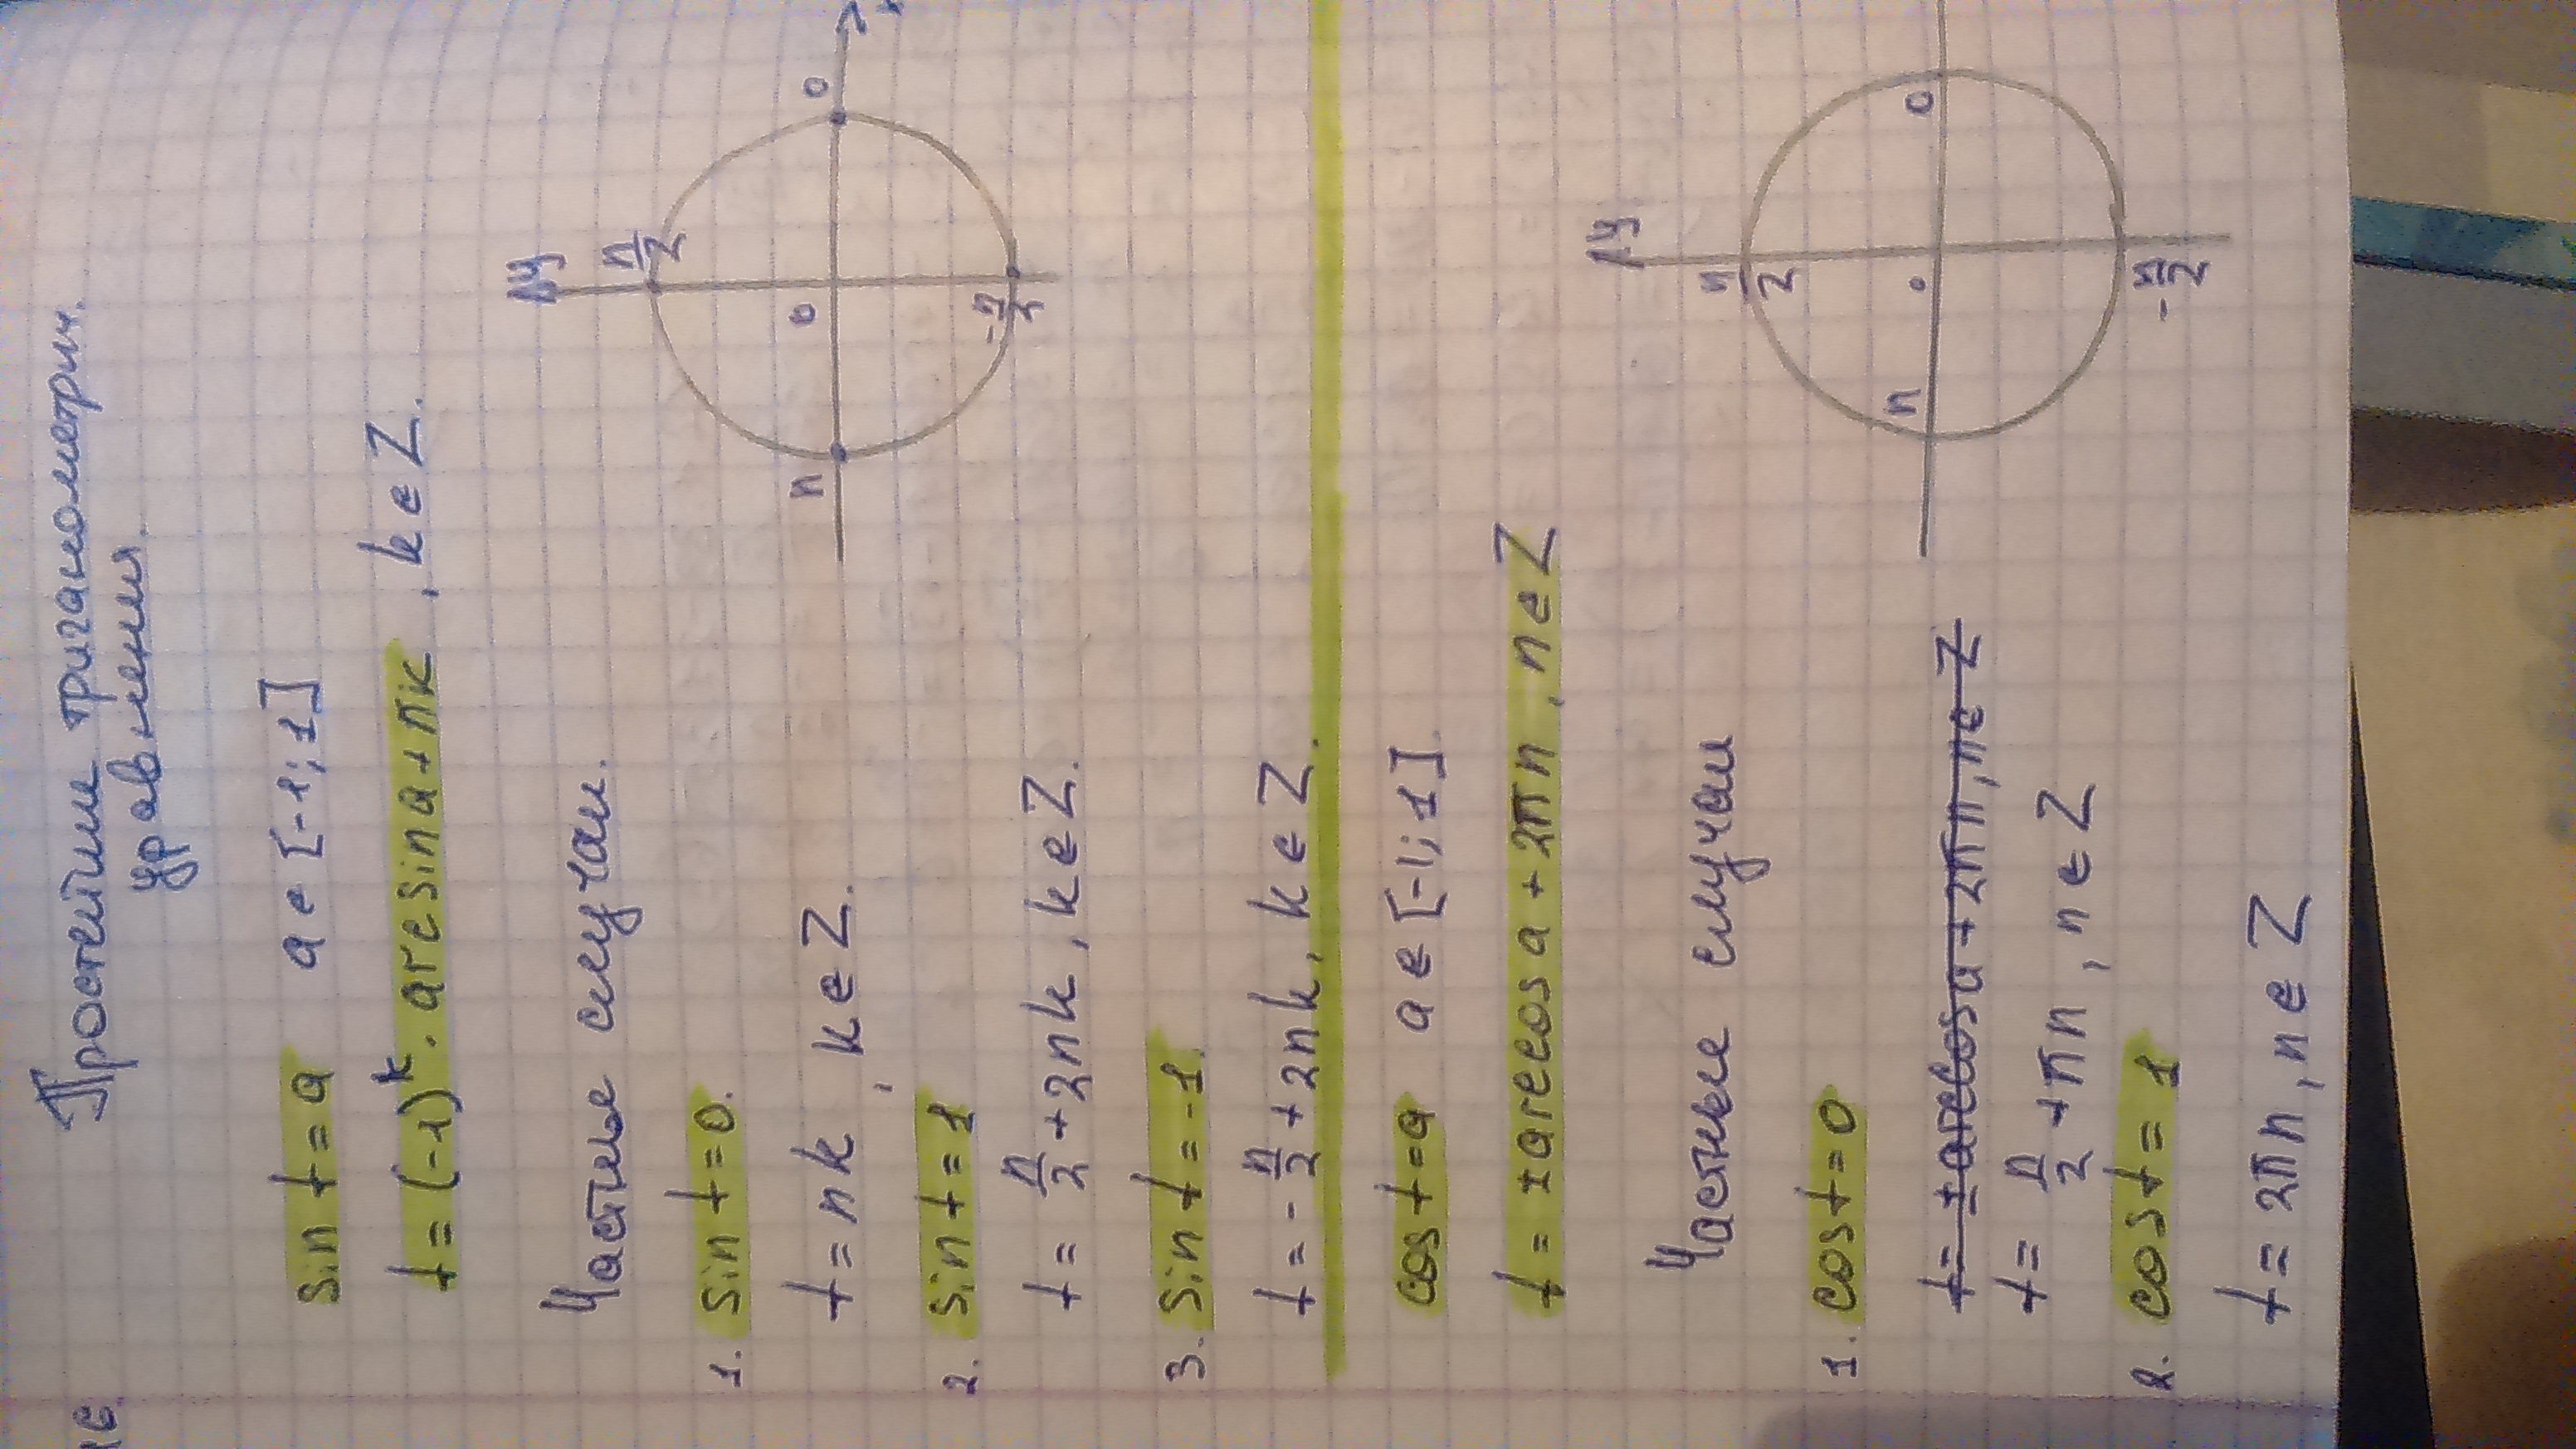 Простейши тригонометрич.
уравнения.
sin t = a a ∈ [-1; 1]
t = (-1)^k · arcsin a + πk, k ∈ Z.
Частные случаи.
y
π/2
π 0 0
-π/2
1. sin t = 0.
t = πk, k ∈ Z.
2. sin t = 1
t = π/2 + 2πk, k ∈ Z.
3. sin t = -1.
t = -π/2 + 2πk, k ∈ Z.
cos t = a a ∈ [-1; 1]
t = ± arccos a + 2πn, n ∈ Z
Частные случаи
y
π/2
π 0 0
-π/2
1. cos t = 0
t = ± arccos a + 2πn, n ∈ Z
t = π/2 + πn, n ∈ Z
2. cos t = 1
t = 2πn, n ∈ Z